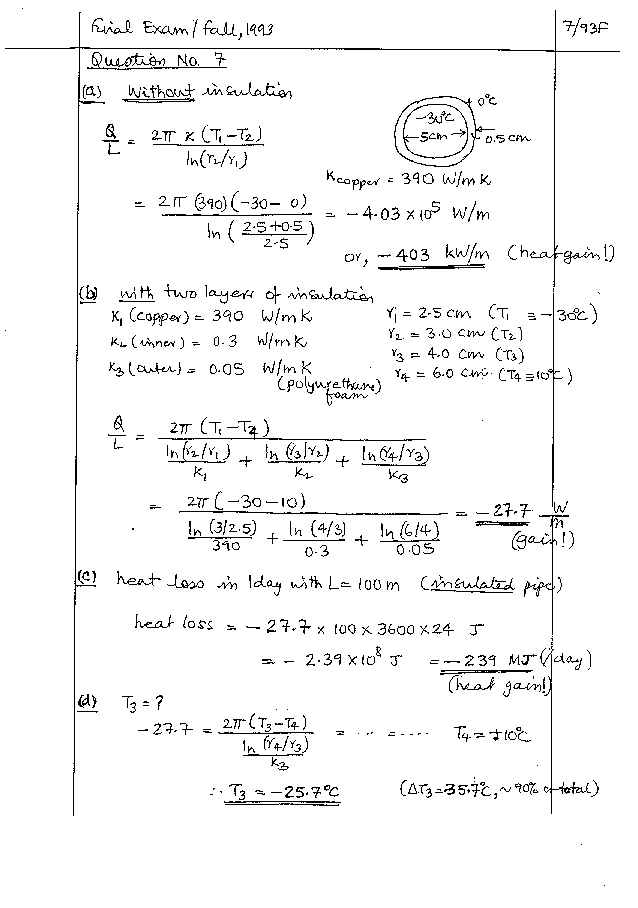 Final Exam/Fall, 1993 7/93F
Question No. 7
(a) Without insulation
0°C
-30°C
5cm
0.5cm
Q/L = 2π K (T1-T2) / ln(r2/r1)
Kcopper = 390 W/m K
= 2π (390)(-30-0) / ln (2.5+0.5 / 2.5) = -4.03 × 10^5 W/m
or, -403 kW/m (heat gain!)
(b) with two layers of insulation
K1 (copper) = 390 W/m K r1 = 2.5 cm (T1 = -30°C)
K2 (inner) = 0.3 W/m K r2 = 3.0 cm (T2)
K3 (outer) = 0.05 W/m K r3 = 4.0 cm (T3)
(polyurethane foam) r4 = 6.0 cm (T4 = 10°C)
Q/L = 2π (T1-T4) / ( ln(r2/r1)/K1 + ln(r3/r2)/K2 + ln(r4/r3)/K3 )
= 2π (-30-10) / ( ln(3/2.5)/390 + ln(4/3)/0.3 + ln(6/4)/0.05 ) = -27.7 W/m
(gain!)
(c) heat loss in 1day with L= 100 m (insulated pipe)
heat loss = -27.7 × 100 × 3600 × 24 J
= - 2.39 × 10^8 J = -239 MJ (/day)
(heat gain!)
(d) T3 = ?
-27.7 = 2π (T3-T4) / ( ln(r4/r3)/K3 ) = ... = ..... T4 = +10°C
∴ T3 = -25.7°C (ΔT3=35.7°C, ~90% of total)